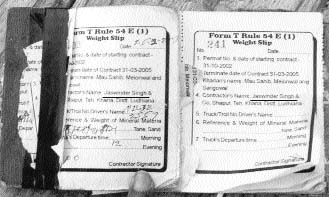 orm T Rule 54 E (1)
Weight Slip
Date
& date of starting contract -
2002
ate of Contract 31-03-2005
r's name: Mau Sahib, Melonwal and
tor's Name: Jaswinder Singh &
Shapur, Teh. Khana, Distt. Ludhiana
ck/Trol No Driver's Name
ference & Weight of Mineral Material
Tone, Sand
k's Departure time: Morning
Evening
Contractor Signature
Form T Rule 54 E (1)
Weight Slip
No. Date
1. Permit No. & date of starting contract -
31-10-2002
2. Turminate date of Contract 31-03-2005
3. Kharian's name: Mau Sahib, Melonwal and
Gangowal
4. Contractor's Name: Jaswinder Singh &
Co. Shapur, Teh. Khana, Distt. Ludhiana
5. Truck/Trol No Driver's Name
6. Reference & Weight of Mineral Material
Tone, Sand
7. Truck's Departure time: Morning
Evening
Contractor Signature